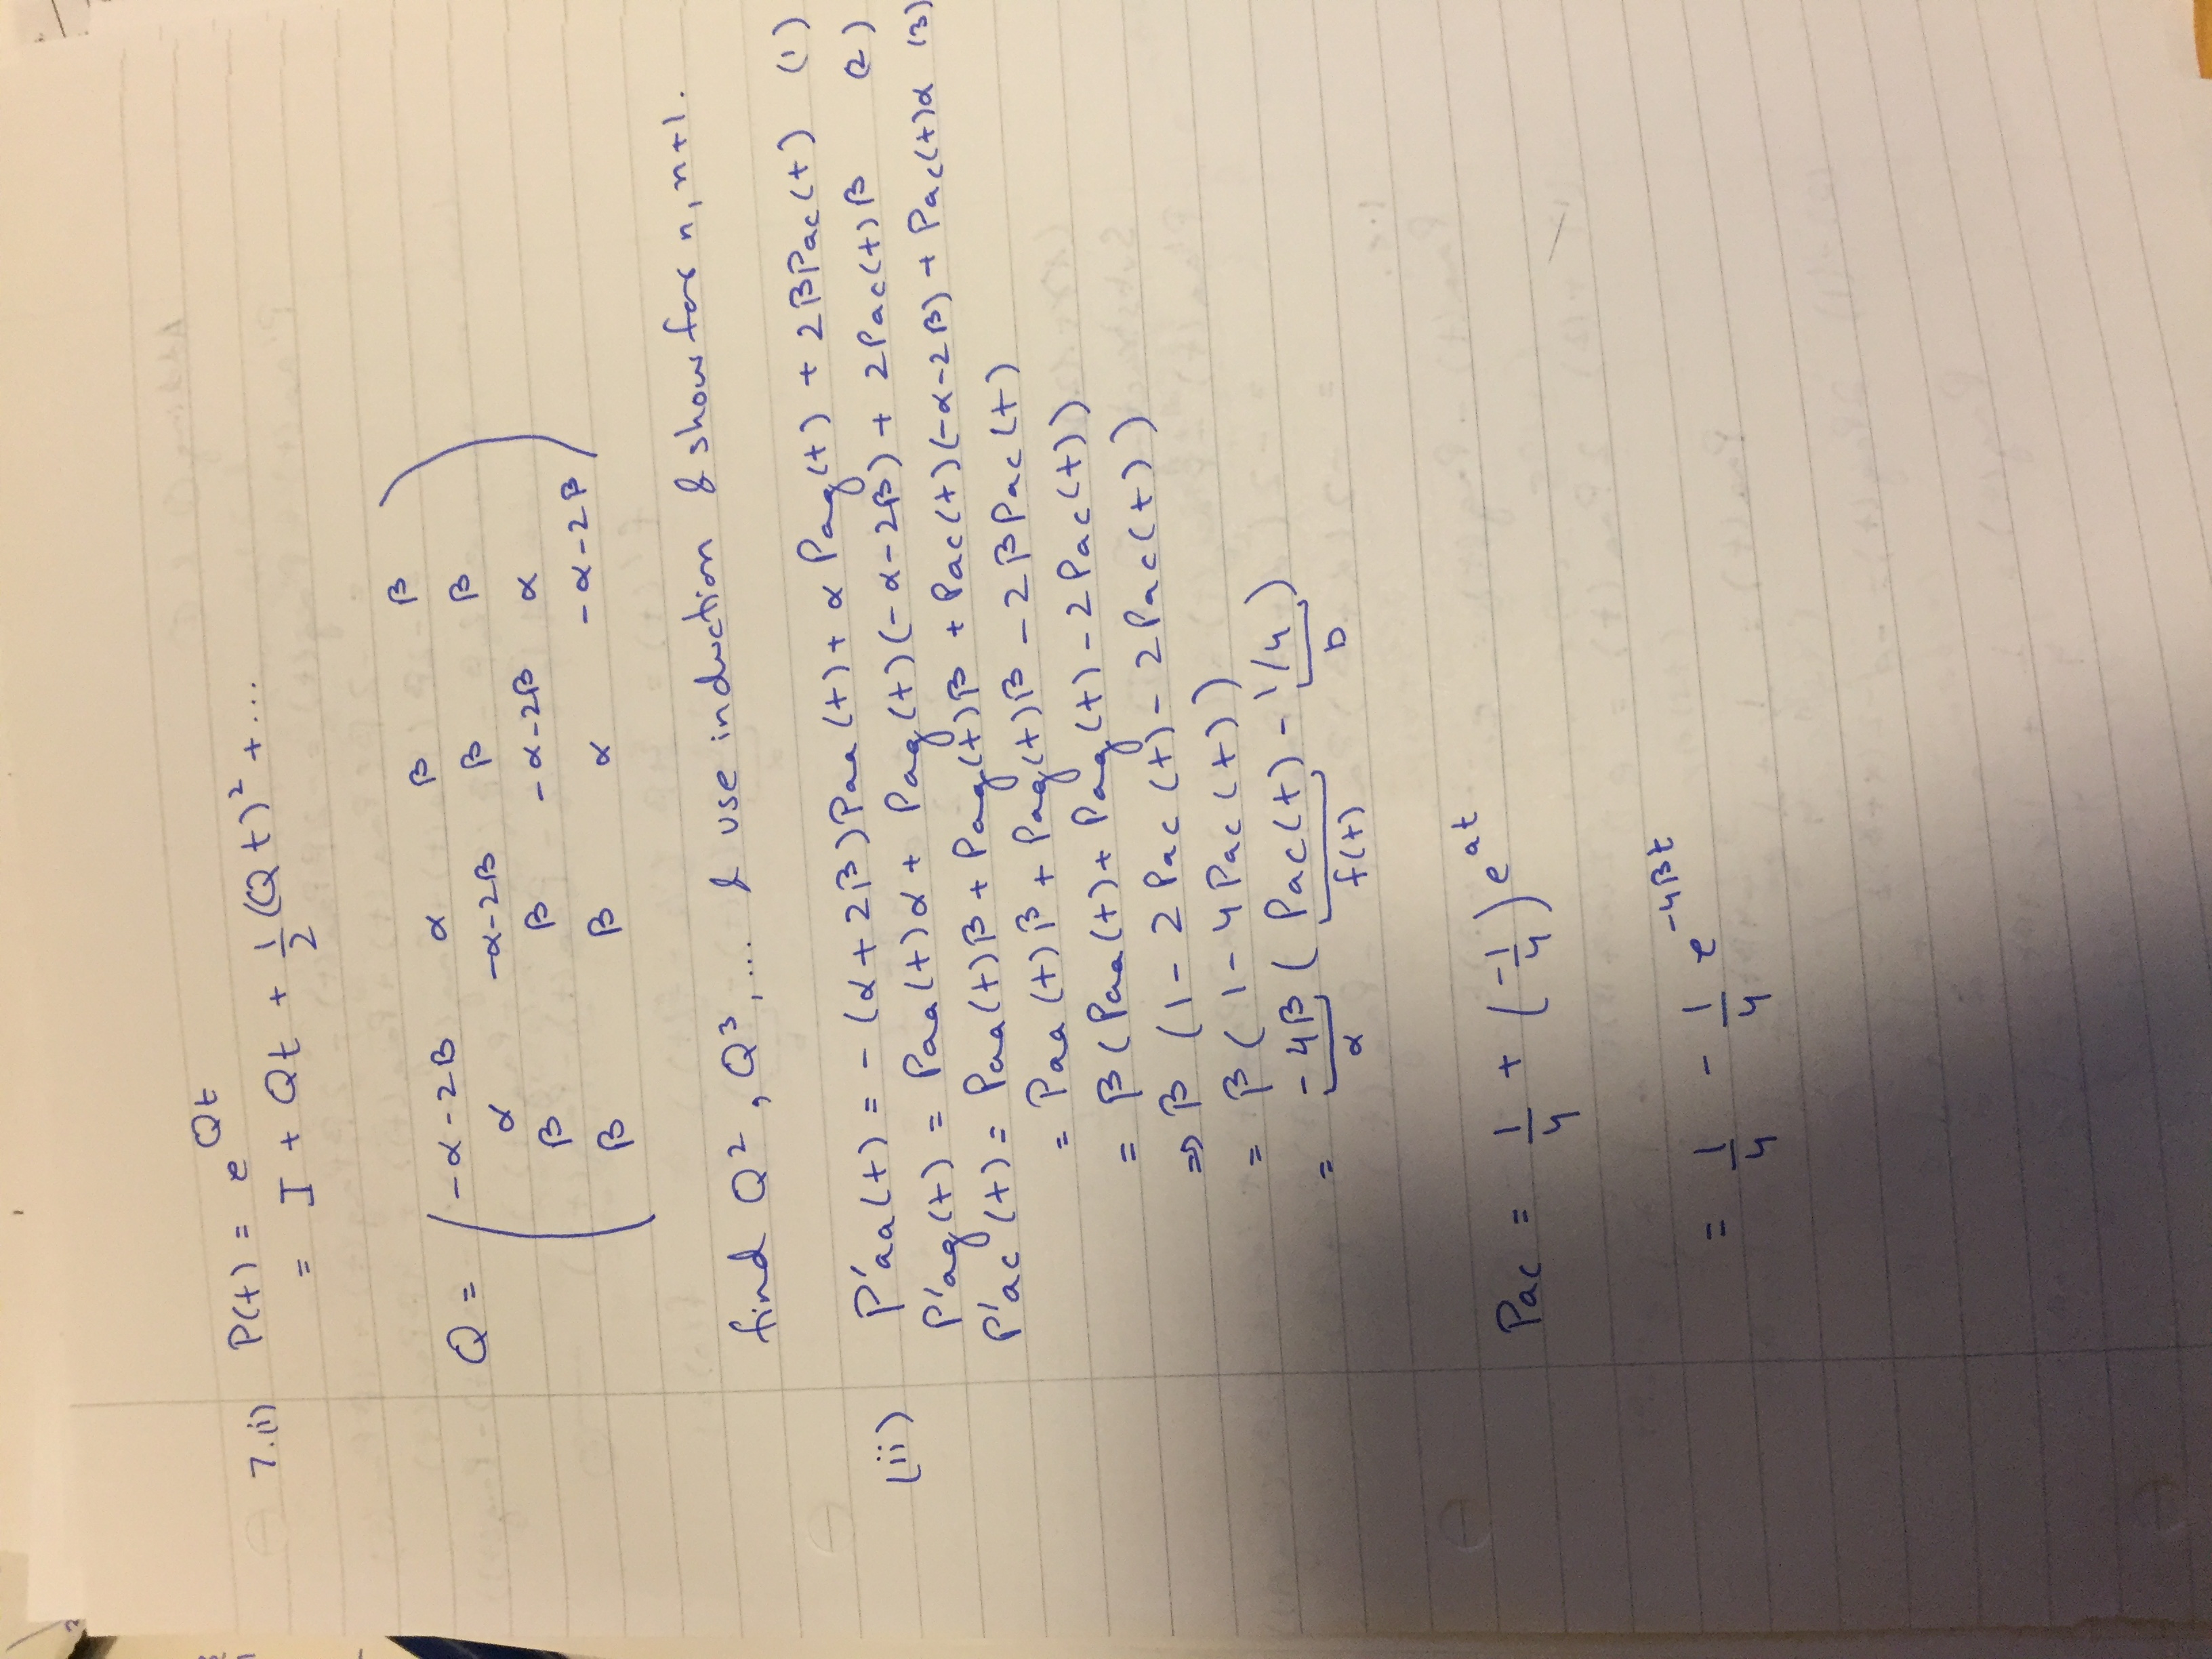 7.(i) P(t) = e^{Qt}
= I + Qt + 1/2 (Qt)² + ...
Q = ( -α-2β α β β
α -α-2β β β
β β -α-2β α
β β α -α-2β )
find Q², Q³, ... & use induction & show for n, n+1.
(ii) P'aa(t) = -(α+2β)Paa(t) + α Pag(t) + 2βPac(t) (1)
P'ag(t) = Paa(t)α + Pag(t)(-α-2β) + 2Pac(t)β (2)
P'ac(t) = Paa(t)β + Pag(t)β + Pac(t)(-α-2β) + Pac(t)α (3)
= Paa(t)β + Pag(t)β - 2βPac(t)
= β(Paa(t) + Pag(t) - 2Pac(t))
⇒ β (1 - 2Pac(t) - 2Pac(t))
= β(1 - 4Pac(t))
= -4β (Pac(t) - 1/4)
α f(t) b
Pac = 1/4 + (-1/4) e^{at}
= 1/4 - 1/4 e^{-4βt}